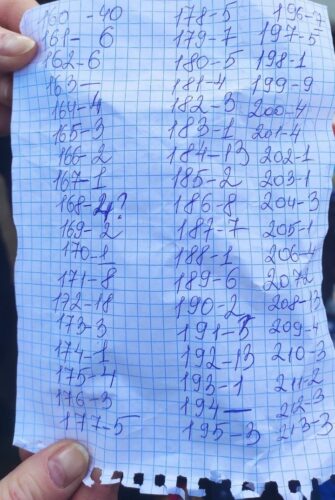 160-40
161- 6
162-6
163-
164-4
165-3
166-2
167-1
168-24?
169-2
170-1
171-8
172-18
173-3
174-1
175-4
176-3
177-5
178-5
179-7
180-5
181-4
182-3
183-1
184-13
185-2
186-8
187-7
188-1
189-6
190-2
191-3
192-13
193-1
194-
195-3
196-7
197-5
198-1
199-9
200-4
201-4
202-1
203-1
204-3
205-1
206-4
207-2
208-13
209-4
210-3
211-2
212-3
213-3